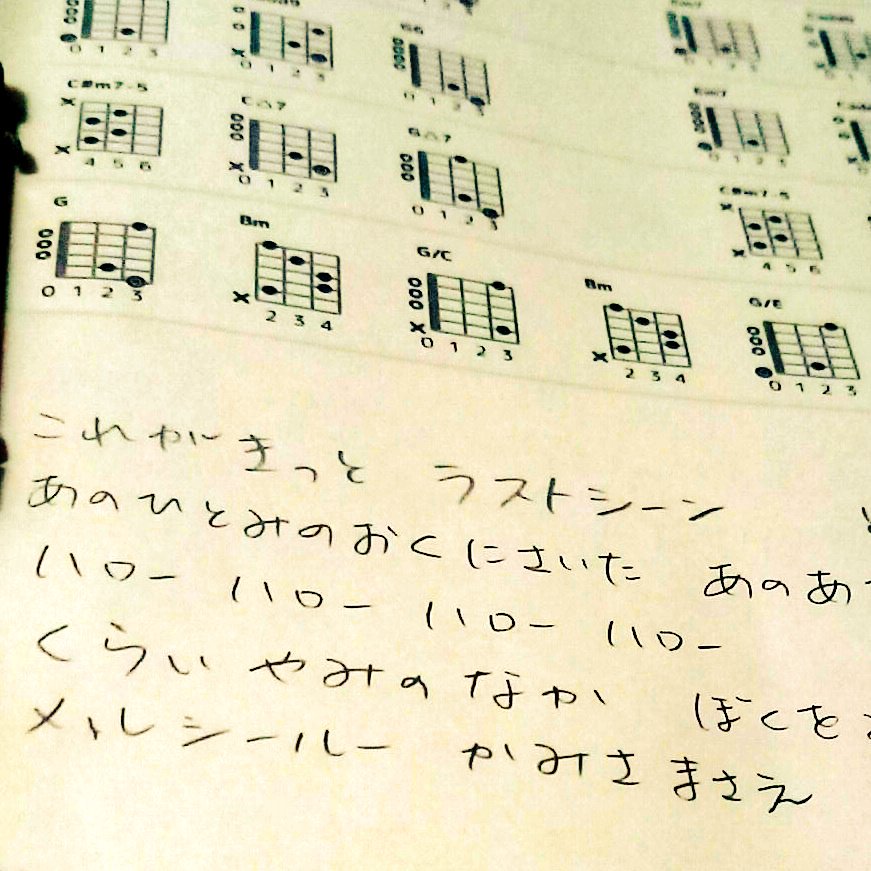 0 1 2 3
0 1 2 3
G6
0 1 2 3
C#m7-5
× × 4 5 6
C△7
× 0 1 2 3
G△7
0 1 2 3
Em7
0 1 2 3
C#m7-5
× × 4 5 6
G
0 1 2 3
Bm
× 2 3 4
G/C
× 0 1 2 3
Bm
× 2 3 4
G/E
0 1 2 3
これがきっと ラストシーン
あのひとみのおくにさいた あのあ
ハロー ハロー ハロー ハロー
くらい やみの なか ぼくを
メルシールー かみさまさえ